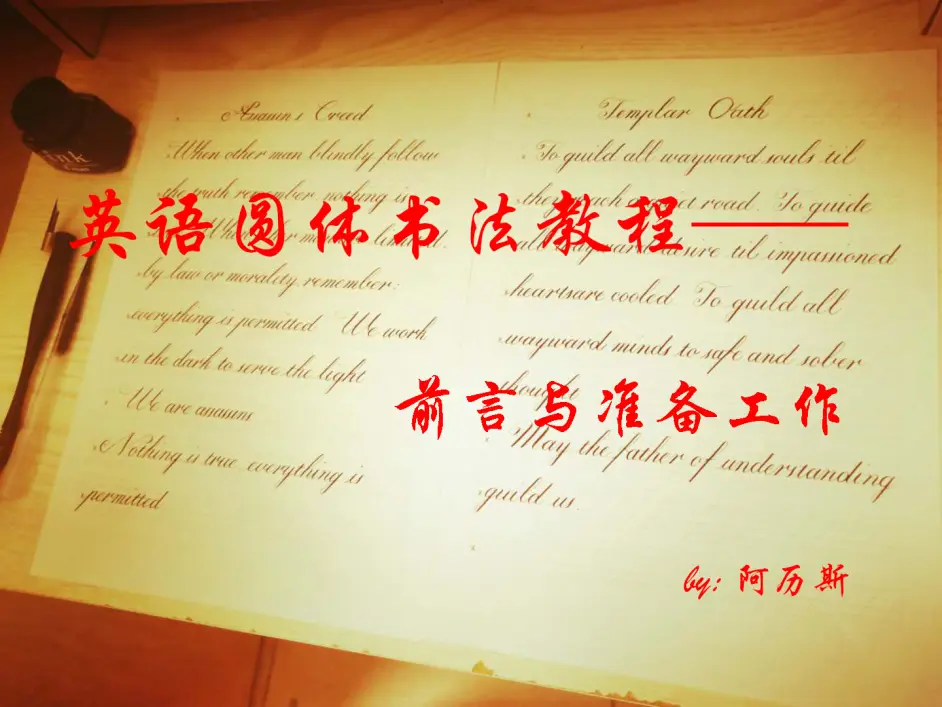 英语圆体书法教程——
前言与准备工作
by: 阿历斯
Assassin s Creed
When other man blindly follow
the truth remember nothing is
When other
by law or morality, remember:
everything is permitted We work
in the dark to serve the light
We are assassins
Nothing is true, everything is
permitted
Templar Oath
To guild all wayward souls 'til
they reach a road. To guide
all wayward desire 'til impassioned
heartsare cooled To guild all
wayward minds to safe and sober
thought
May the father of understanding
guild us.